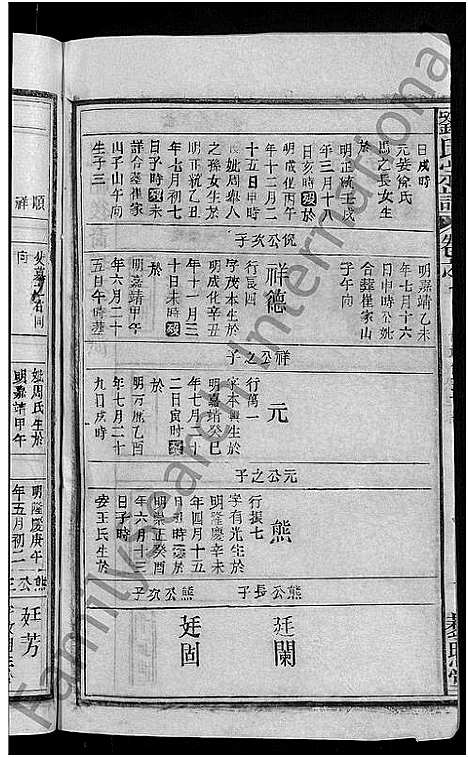 日戌時
元娶徐氏
馬之長女生
於
明正統壬戌
年三月十八
日亥時歿於
明成化丙午
年十二月二
十五日申時
妣周舉人
之孫女生於
明正統乙丑
年七月初七
日子時歿未
詳合葬崔家
山子山午向
生子三
侃公次子
明嘉靖乙未
年七月十六
日申時公妣
合葬崔家山
子午向
祥德
行良四
字茂本生於
明成化辛丑
年十一月三
十日未時歿
於
明嘉靖甲午
年六月二十
五日午時葬
祥公之子
元
行萬一
字本興生於
明嘉靖癸巳
年七月二十
二日寅時歿
於
明万曆乙酉
年七月二十
九日戌時
元公之子
熊
行振七
字有光生於
明隆慶辛未
年四月十五
日丑時歿於
明崇正癸酉
年六月十三
日子時
娶王氏生於
熊公長子
廷闌
熊公次子
廷固
順
祥
向
妣周氏生於
明嘉靖甲午
明隆慶庚午
年五月初二
熊公三
廷芳
劉氏宗譜
Familysearch International